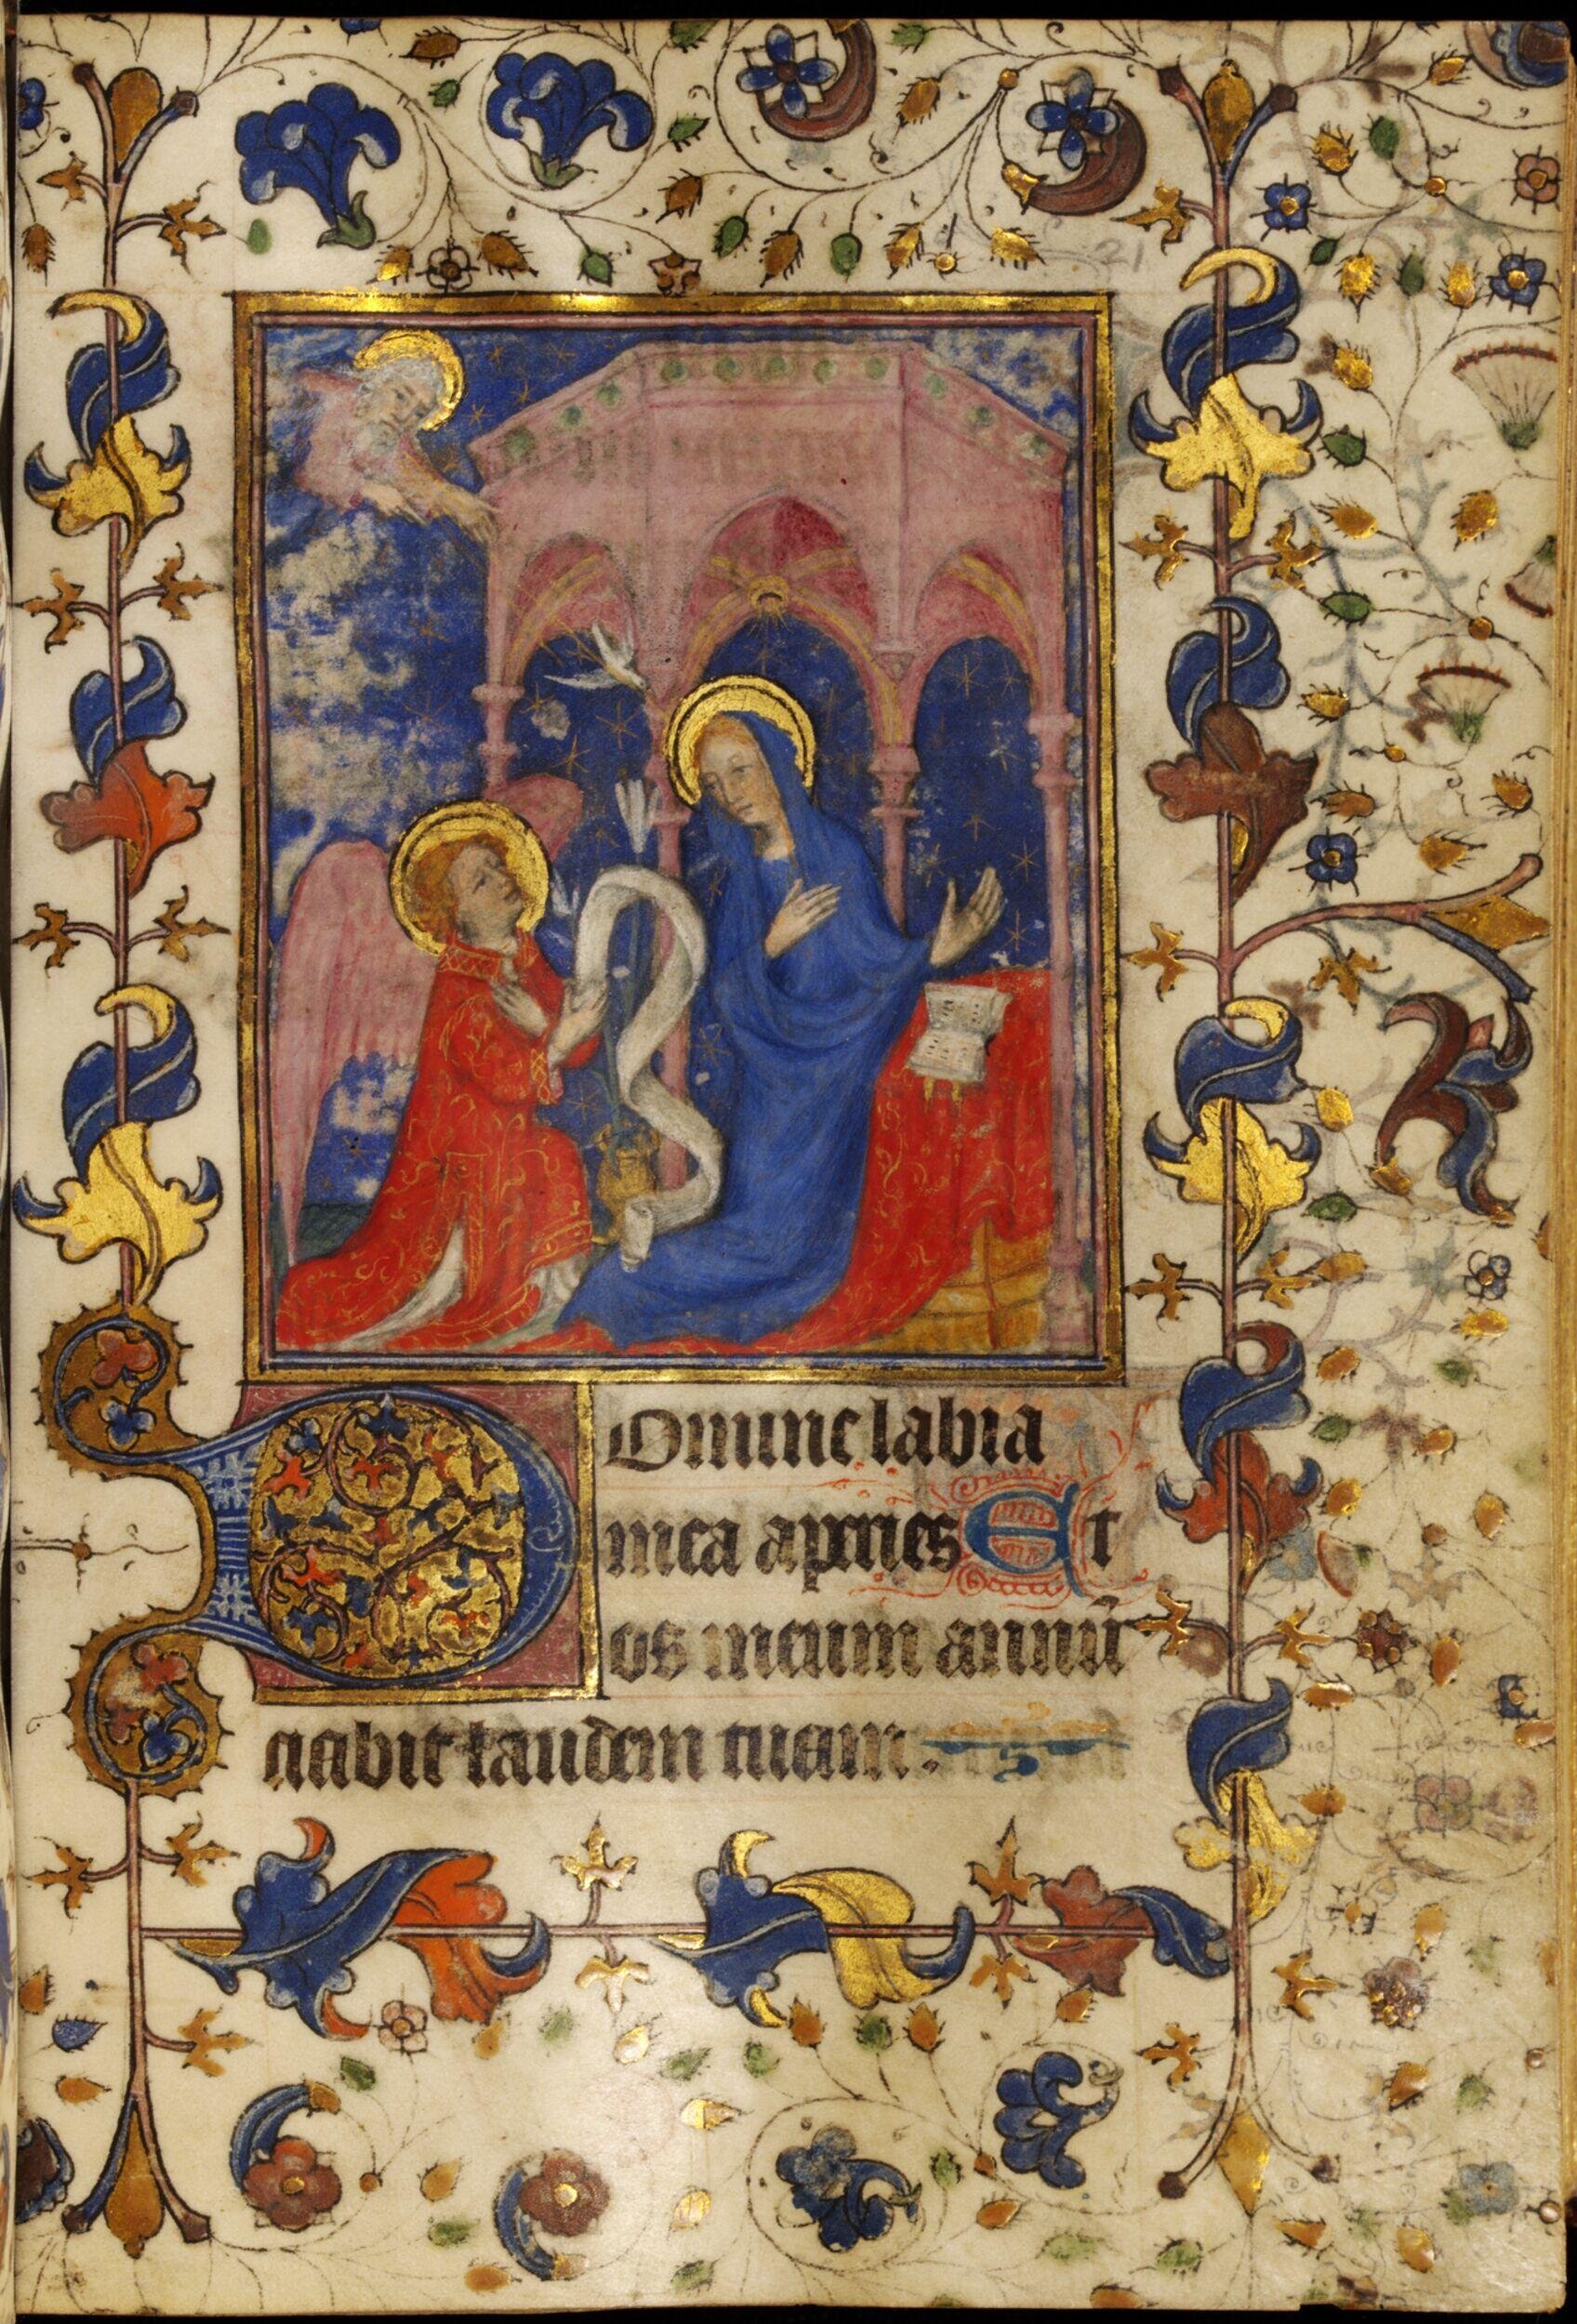 Domine labia
mea aperies Et
os meum annu͞
tiabit laudem tuam.
21